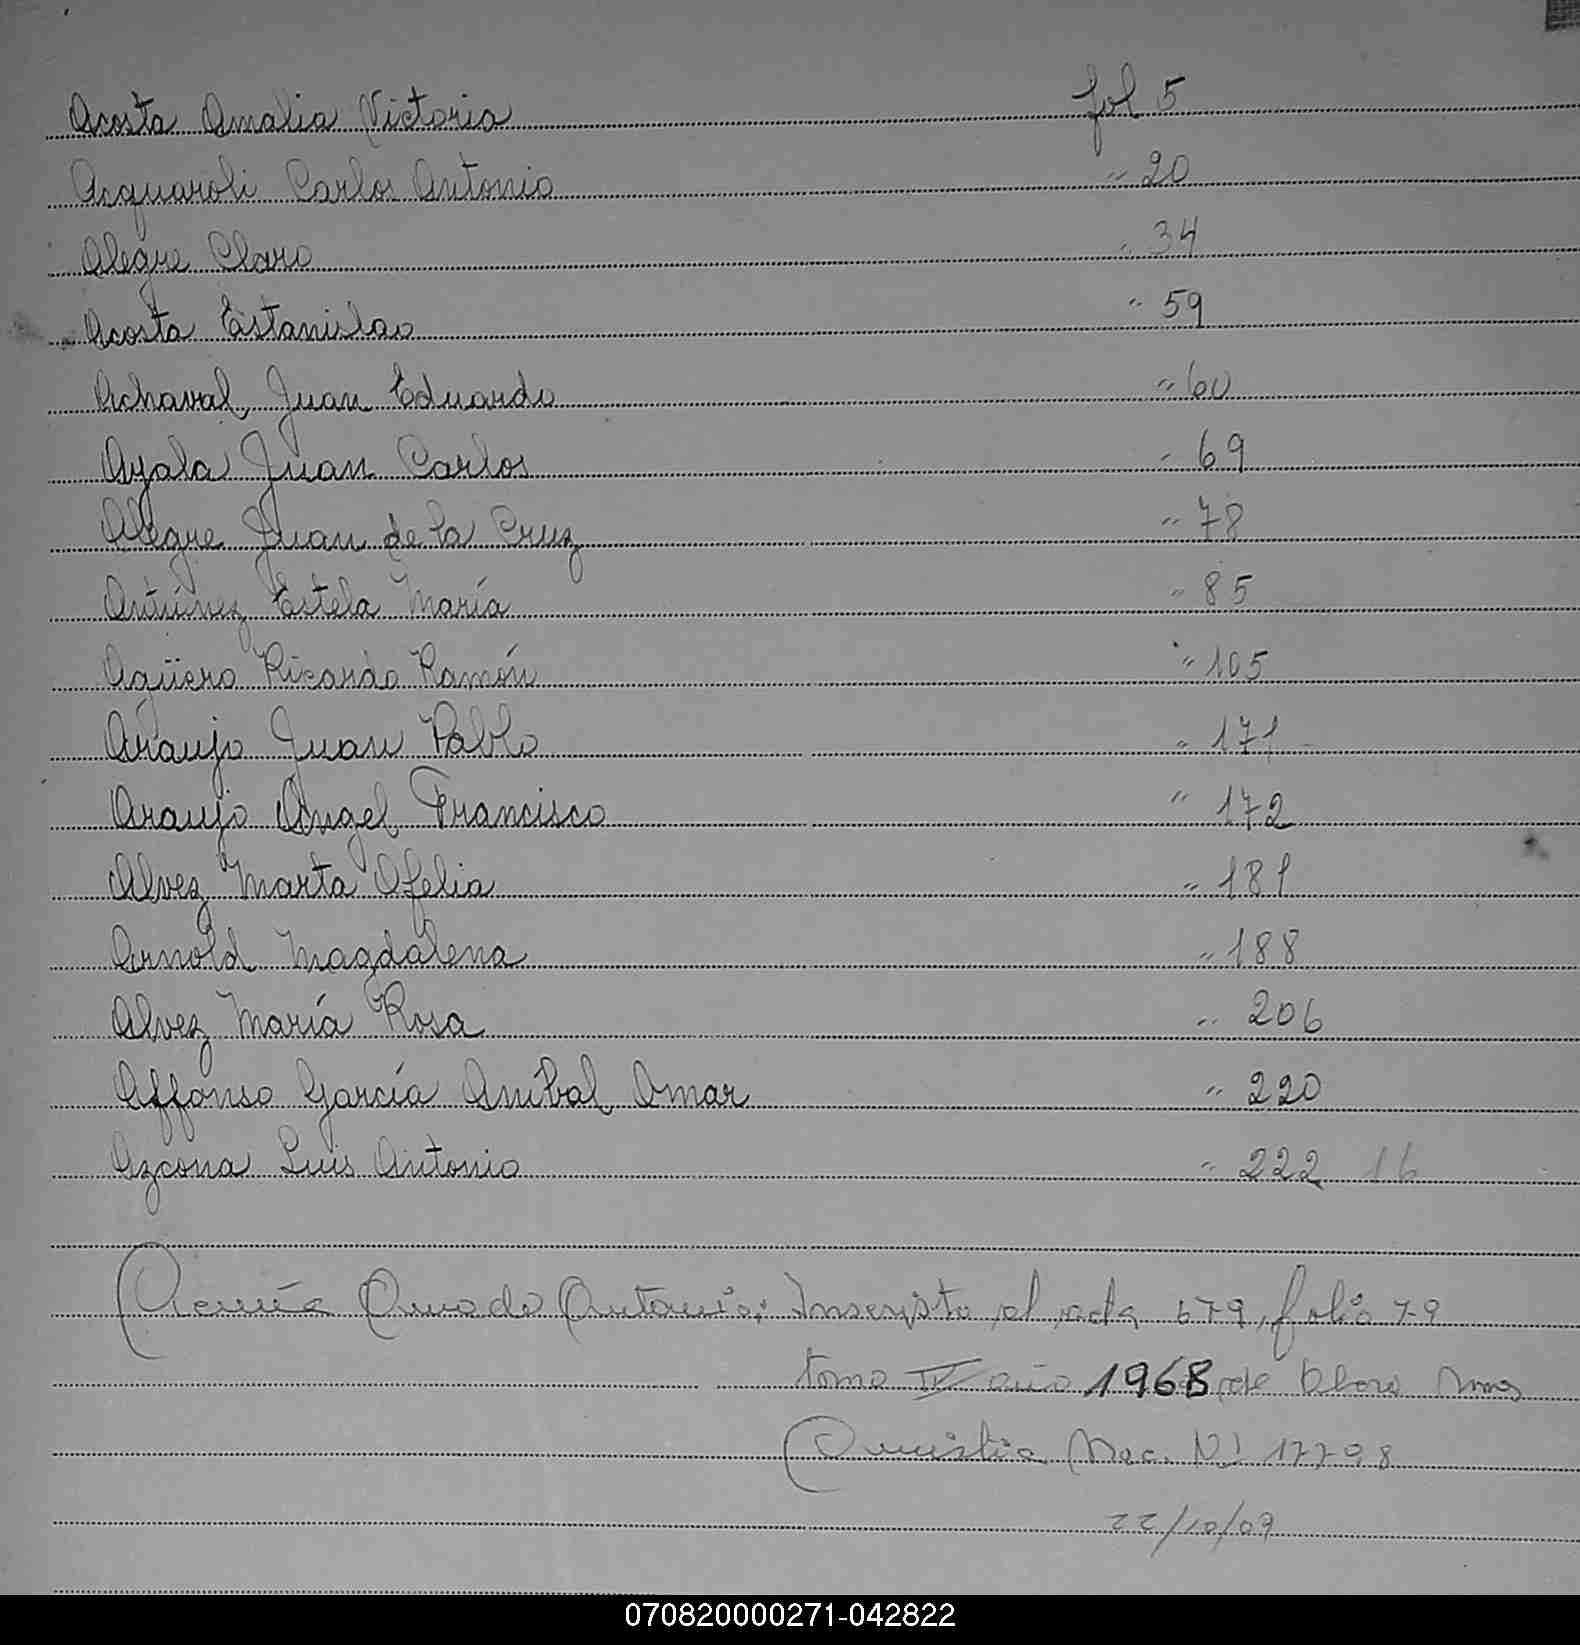 Acosta Amalia Victoria fol 5
Acquaroli Carlos Antonio " 20
Alegre Claro " 34
Acosta Estanislao " 59
Achaval, Juan Eduardo " 60
Ayala Juan Carlos " 69
Alegre Juan de la Cruz " 78
Antúnez Estela María " 85
Agüero Ricardo Ramón " 105
Araujo Juan Pablo " 171
Araujo Angel Francisco " 172
Alvez Marta Ofelia " 181
Arnold Magdalena " 188
Alvez María Rosa " 206
Affonso García Anibal Omar " 220
Azcona Luis Antonio " 222 16
Acuña Amado Antonio: Inscripto al acta 679, folio 79
tomo IV año 1968 de
Amnistia Nac. Nº
22/10/07
070820000271-042822